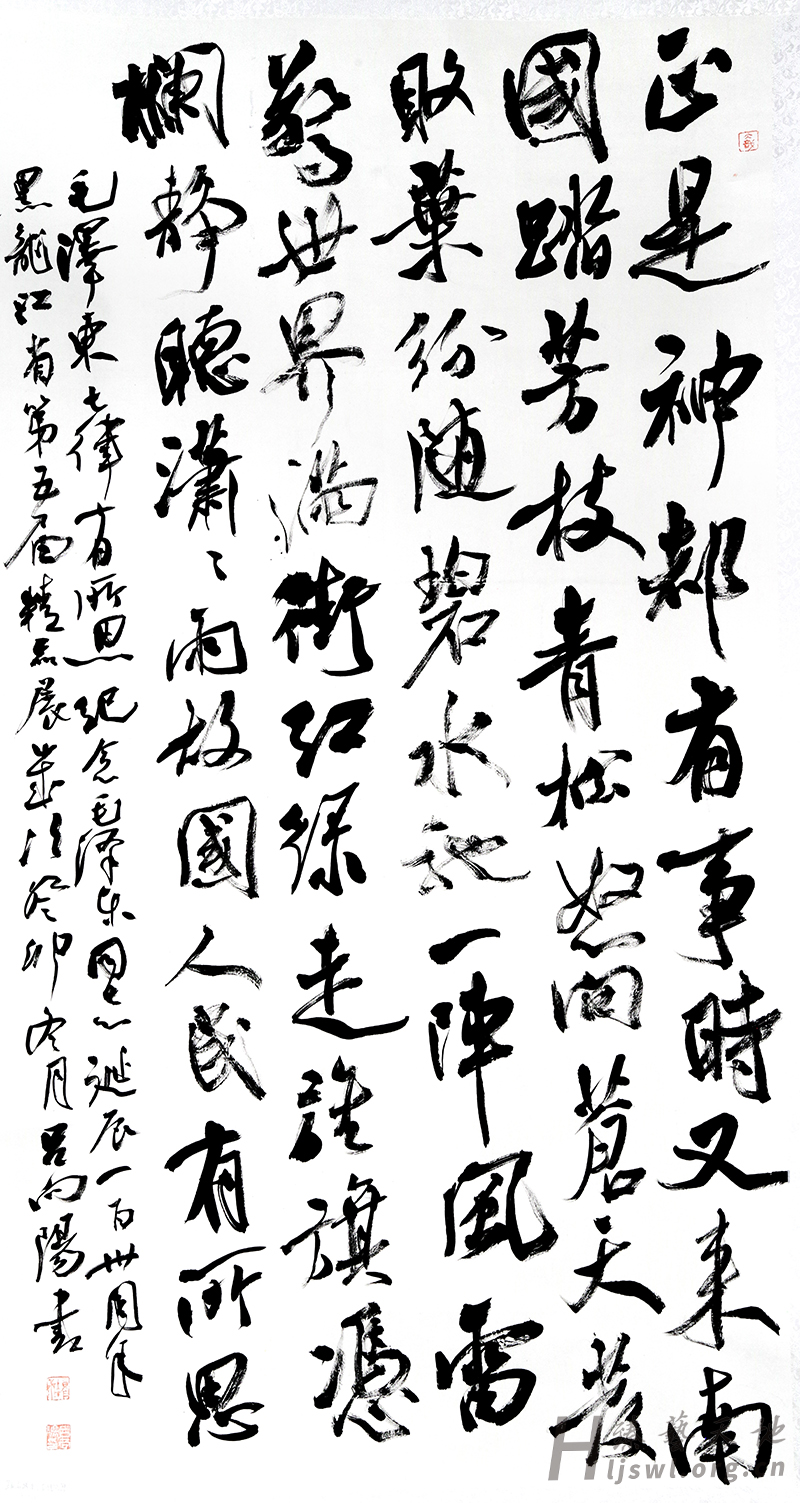 正是神都有事時又来南
國踏芳枝青松怒向蒼天發
敗葉紛随碧水馳一陣風雷
驚世界滿街红绿走旌旗憑
欄静聽瀟々雨故國人民有所思
毛澤東七律有所思纪念毛泽东同志诞辰一百卅周年
黑龍江省第五届精品展歲次癸卯冬月吕向陽書
ljswl.org.cn